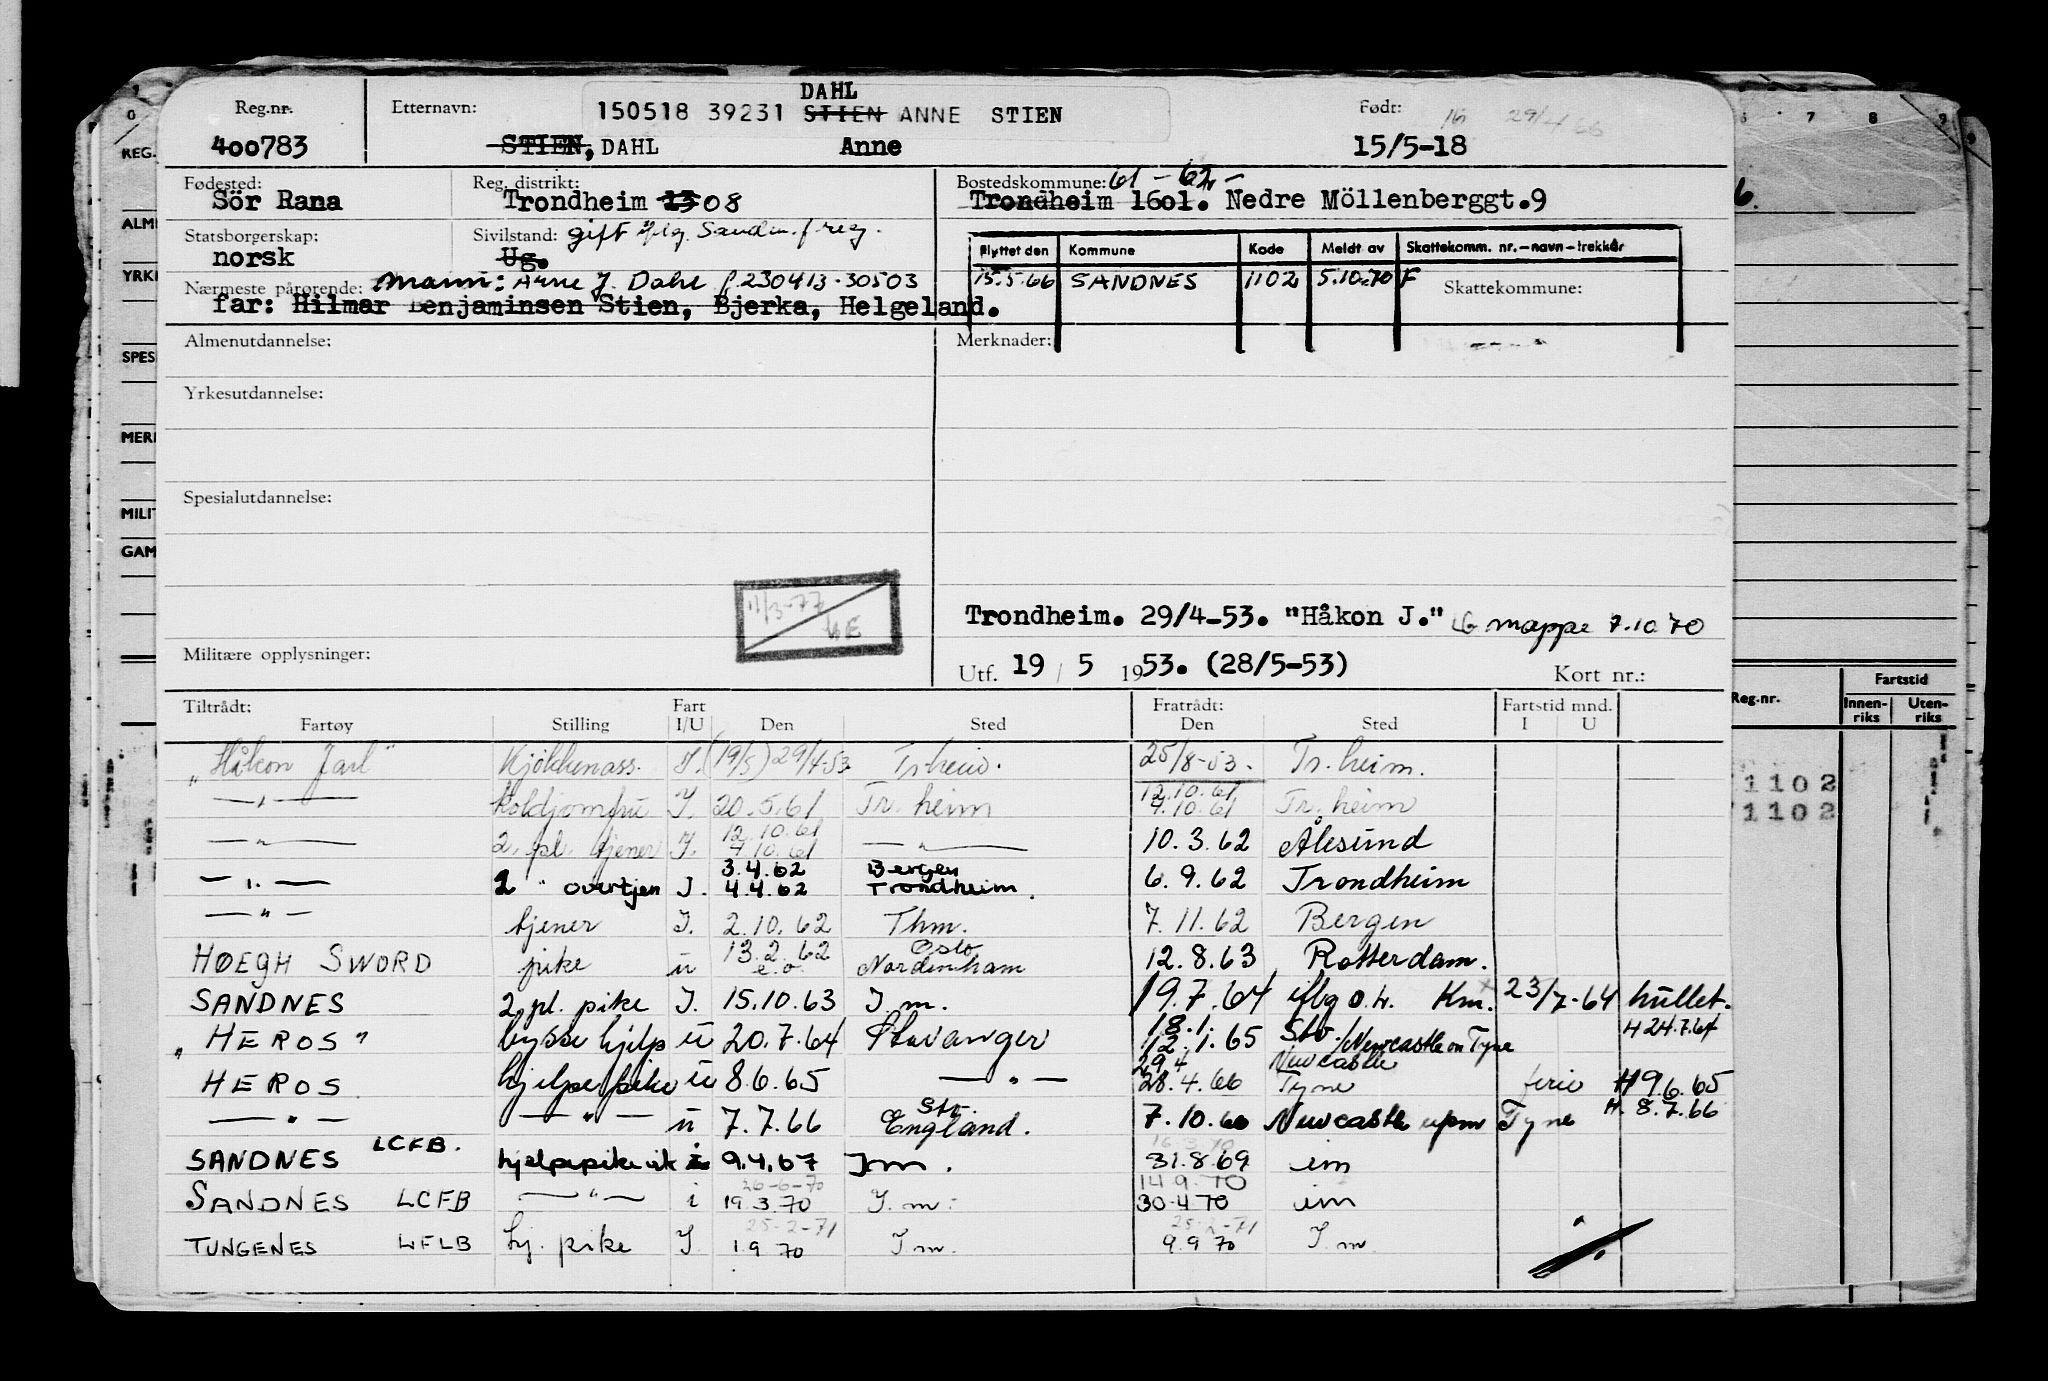 DAHL
Reg.nr. Etternavn: 150518 39231 STIEN ANNE STIEN Født: 29/4-66
400783 STIEN, DAHL Anne 15/5-18
Fødested: Reg. distrikt: Bostedskommune: 61 - 62 -
Sör Rana Trondheim 13 08 Trondheim 1601. Nedre Möllenberggt.9
Statsborgerskap: Sivilstand: gift iflg. Sandn. f.reg.
norsk Ug.
Flyttet den Kommune Kode Meldt av Skattekomm. nr.-navn-trekkår
15.5.66 SANDNES 1102 5.10.70 F Skattekommune:
Nærmeste pårørende: Mann: Arne J. Dahl f. 230413-30503
far: Hilmar Benjaminsen Stien, Bjerka, Helgeland.
Almenutdannelse: Merknader:
Yrkesutdannelse:
Spesialutdannelse:
11/3-77
Trondheim. 29/4-53. "Håkon J." mappe 7.10.70
Militære opplysninger:
Utf. 19 / 5 1953. (28/5-53) Kort nr.:
Tiltrådt: Fart Fratrådt: Fartstid mnd.
Fartøy Stilling I/U Den Sted Den Sted I U
"Håkon Jarl" Kjökkenass. I. (19/5) 29/4-53 Tr.heim. 25/8-53. Tr.heim.
12.10.61
— " — Koldjomfru I. 20.5.61 Tr.heim 7.10.61 Tr.heim
12.10.61
— " — 2. pl. tjener I. 7.10.61 — " — 10.3.62 Ålesund
3.4.62 Bergen
— " — 2 " overtjen I. 4.4.62 Trondheim. 6.9.62 Trondheim
— " — tjener I. 2.10.62 Thm. 7.11.62 Bergen
13.2.62 Oslo
HØEGH SWORD pike u e.o. Nordenham 12.8.63 Rotterdam.
SANDNES 2. pl. pike I. 15.10.63 I.m. 19.7.64 iflg o.h. Km. 23/7-64 hullet.
18.1. Stv. H 24.7.64
"HEROS" bysse hjelp u 20.7.64 Stavanger 12.1.65 /Newcastle on Tyne
29.4 Newcastle
HEROS hjelpepike u 8.6.65 — " — 28.4.66 Tyne ferie H 9.6.65
Stv.
— " — — " — u 7.7.66 England. 7.10.66 Newcastle upon Tyne H. 8.7.66
16.3.70
SANDNES LCFB. hjelpepike i 9.4.67 I.m. 31.8.69 im
26-6-70 14.9.70
SANDNES LCFB — " — i 19.3.70 I.m. 30.4.70 im
25-2-71 25-2-71
TUNGENES LFLB hj. pike I 1.9.70 I.m. 9.9.70 I.m
REG.
ALM
YRK
SPES
MER
MILIT
GAM
6 7 8 9
Reg.nr. Fartstid
Innenriks Utenriks
1102
1102